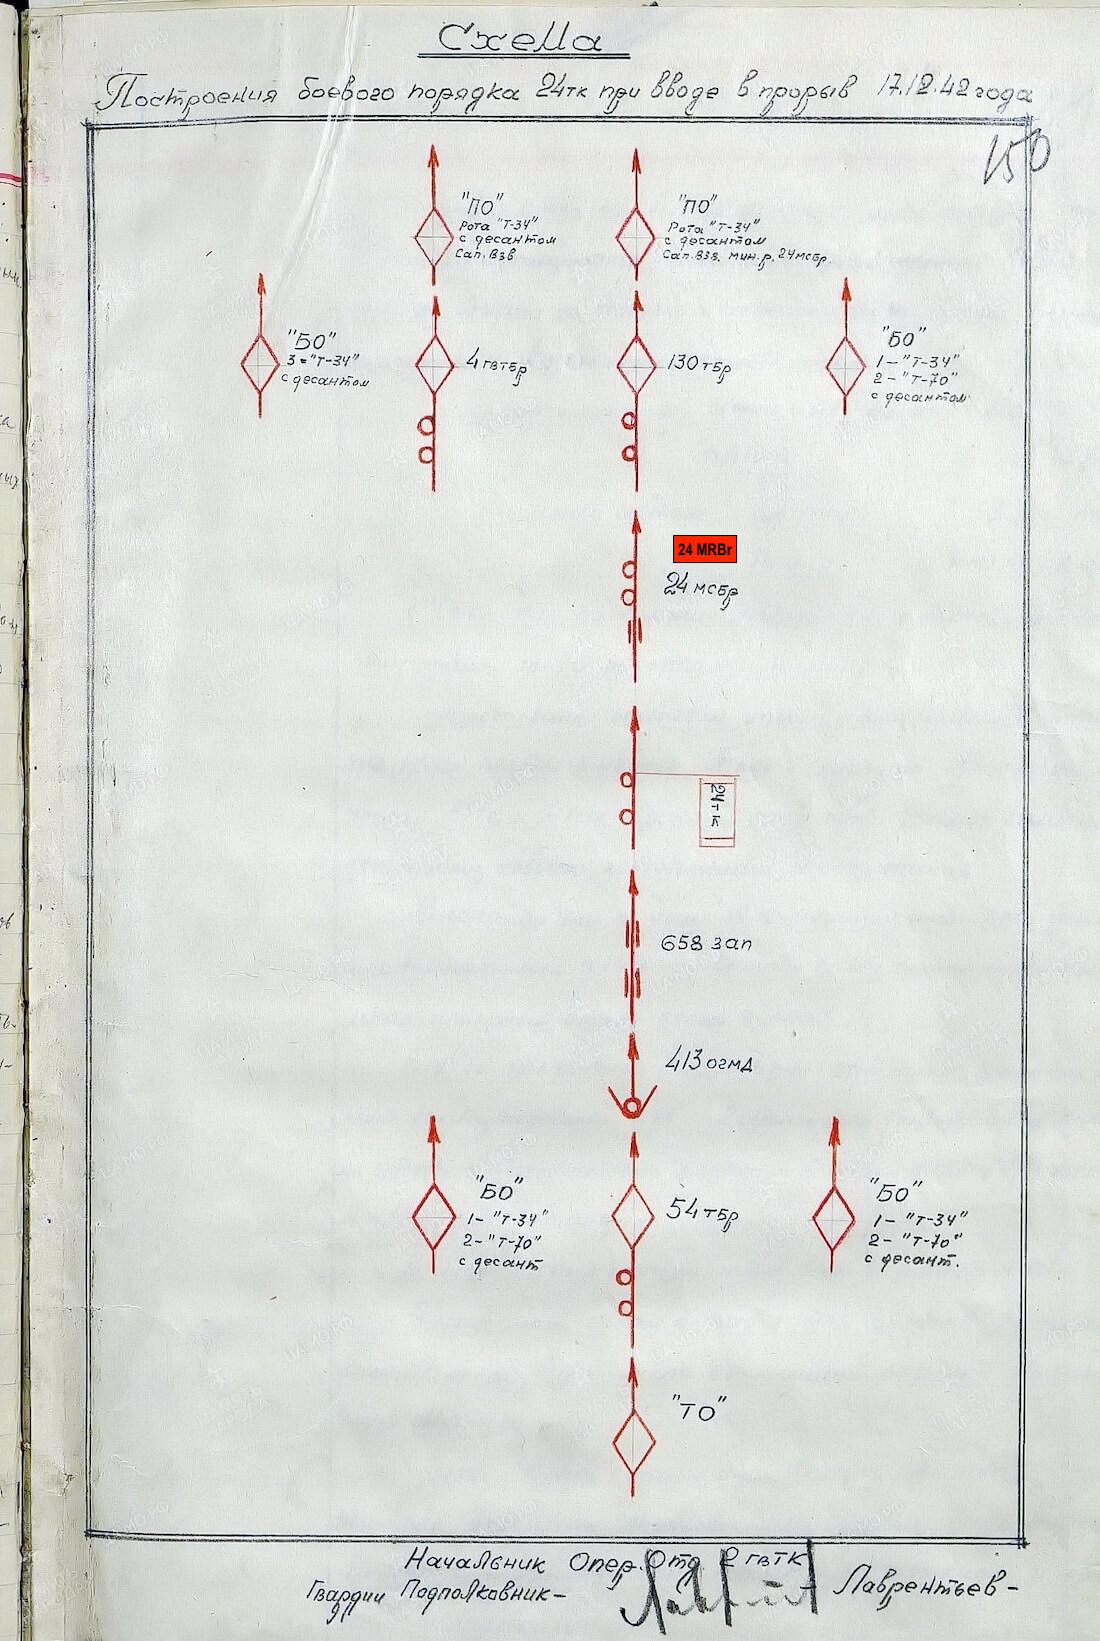 Схема
Построения боевого порядка 24тк при вводе в прорыв 17.12.42 года
150
"ПО"
Рота "Т-34"
с десантом
Сап. взв
"ПО"
Рота "Т-34"
с десантом
Сап. взв. мин. р. 24 мсбр.
"БО"
3 = "Т-34"
с десантом
4 гвтбр
130 тбр
"БО"
1 - "Т-34"
2 - "Т-70"
с десантом
24 MRBr
24 мсбр
24тк
658 зап
413 огмд
"БО"
1 - "Т-34"
2 - "Т-70"
с десант
54 тбр
"БО"
1 - "Т-34"
2 - "Т-70"
с десант.
"ТО"
Начальник Опер. Отд 2 гвтк
Гвардии Подполковник - Лаврентьев -